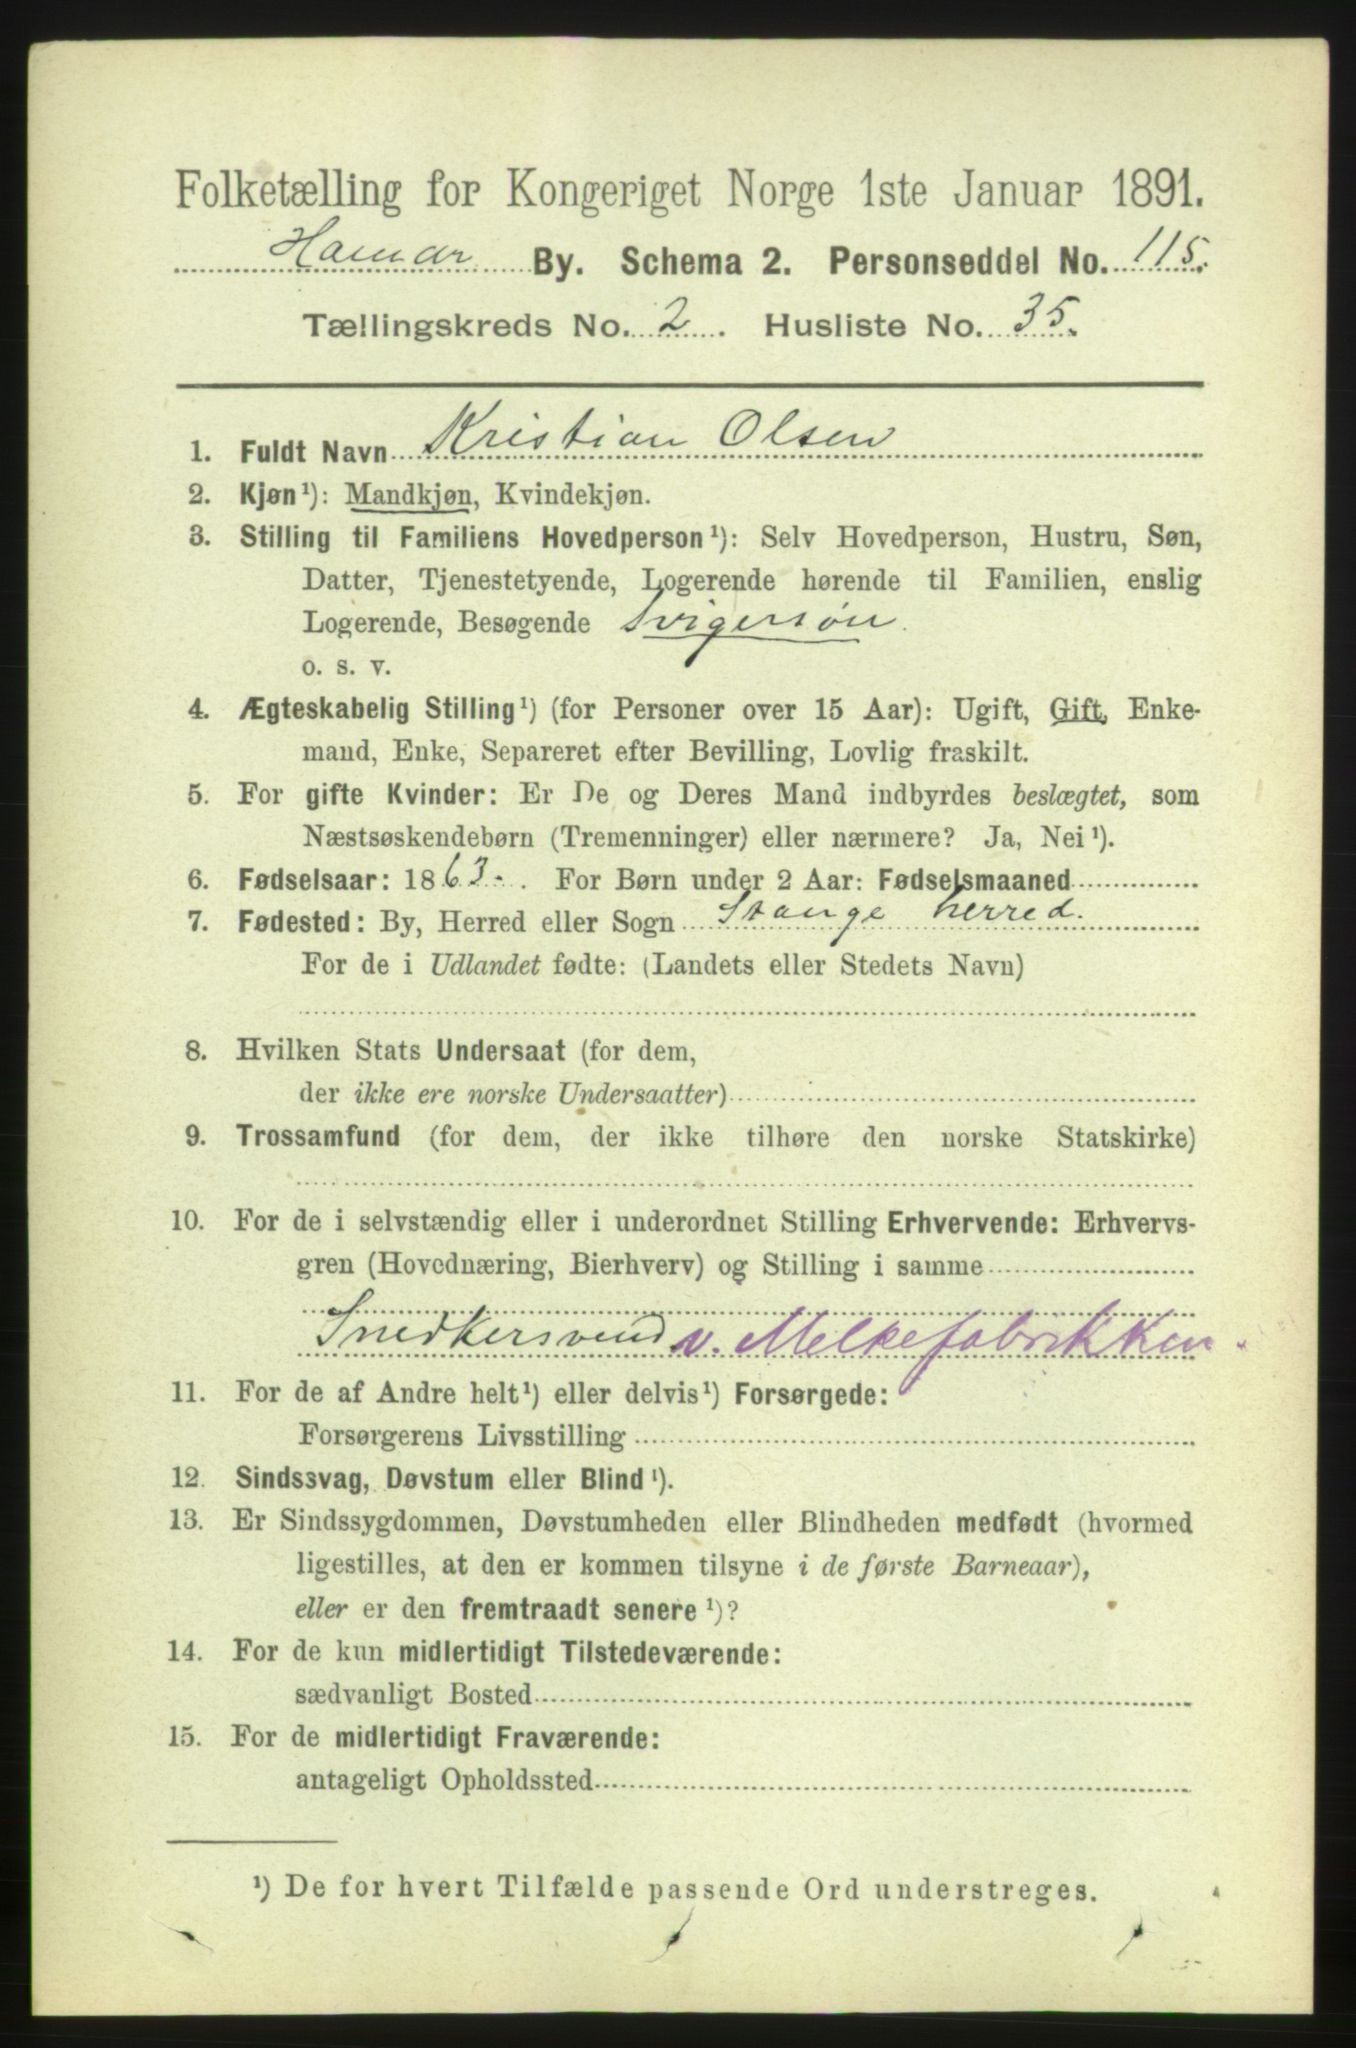 Folketælling for Kongeriget Norge 1ste Januar 1891.
Hamar By. Schema 2. Personseddel No. 115.
Tællingskreds No. 2. Husliste No. 35.
1. Fuldt Navn Kristian Olsen
2. Kjøn¹): Mandkjøn, Kvindekjøn.
3. Stilling til Familiens Hovedperson¹): Selv Hovedperson, Hustru, Søn,
Datter, Tjenestetyende, Logerende hørende til Familien, enslig
Logerende, Besøgende Svigersøn.
o. s. v.
4. Ægteskabelig Stilling¹) (for Personer over 15 Aar): Ugift, Gift, Enke-
mand, Enke, Separeret efter Bevilling, Lovlig fraskilt.
5. For gifte Kvinder: Er De og Deres Mand indbyrdes beslægtet, som
Næstsøskendebørn (Tremenninger) eller nærmere? Ja, Nei¹).
6. Fødselsaar: 1863. For Børn under 2 Aar: Fødselsmaaned
7. Fødested: By, Herred eller Sogn Stange herred.
For de i Udlandet fødte: (Landets eller Stedets Navn)
8. Hvilken Stats Undersaat (for dem,
der ikke ere norske Undersaatter)
9. Trossamfund (for dem, der ikke tilhøre den norske Statskirke)
10. For de i selvstændig eller i underordnet Stilling Erhvervende: Erhvervs-
gren (Hovednæring, Bierhverv) og Stilling i samme
Snedkersvend v. Melkefabrikken.
11. For de af Andre helt¹) eller delvis¹) Forsørgede:
Forsørgerens Livsstilling
12. Sindssvag, Døvstum eller Blind¹).
13. Er Sindssygdommen, Døvstumheden eller Blindheden medfødt (hvormed
ligestilles, at den er kommen tilsyne i de første Barneaar),
eller er den fremtraadt senere¹)?
14. For de kun midlertidigt Tilstedeværende:
sædvanligt Bosted
15. For de midlertidigt Fraværende:
antageligt Opholdssted
¹) De for hvert Tilfælde passende Ord understreges.